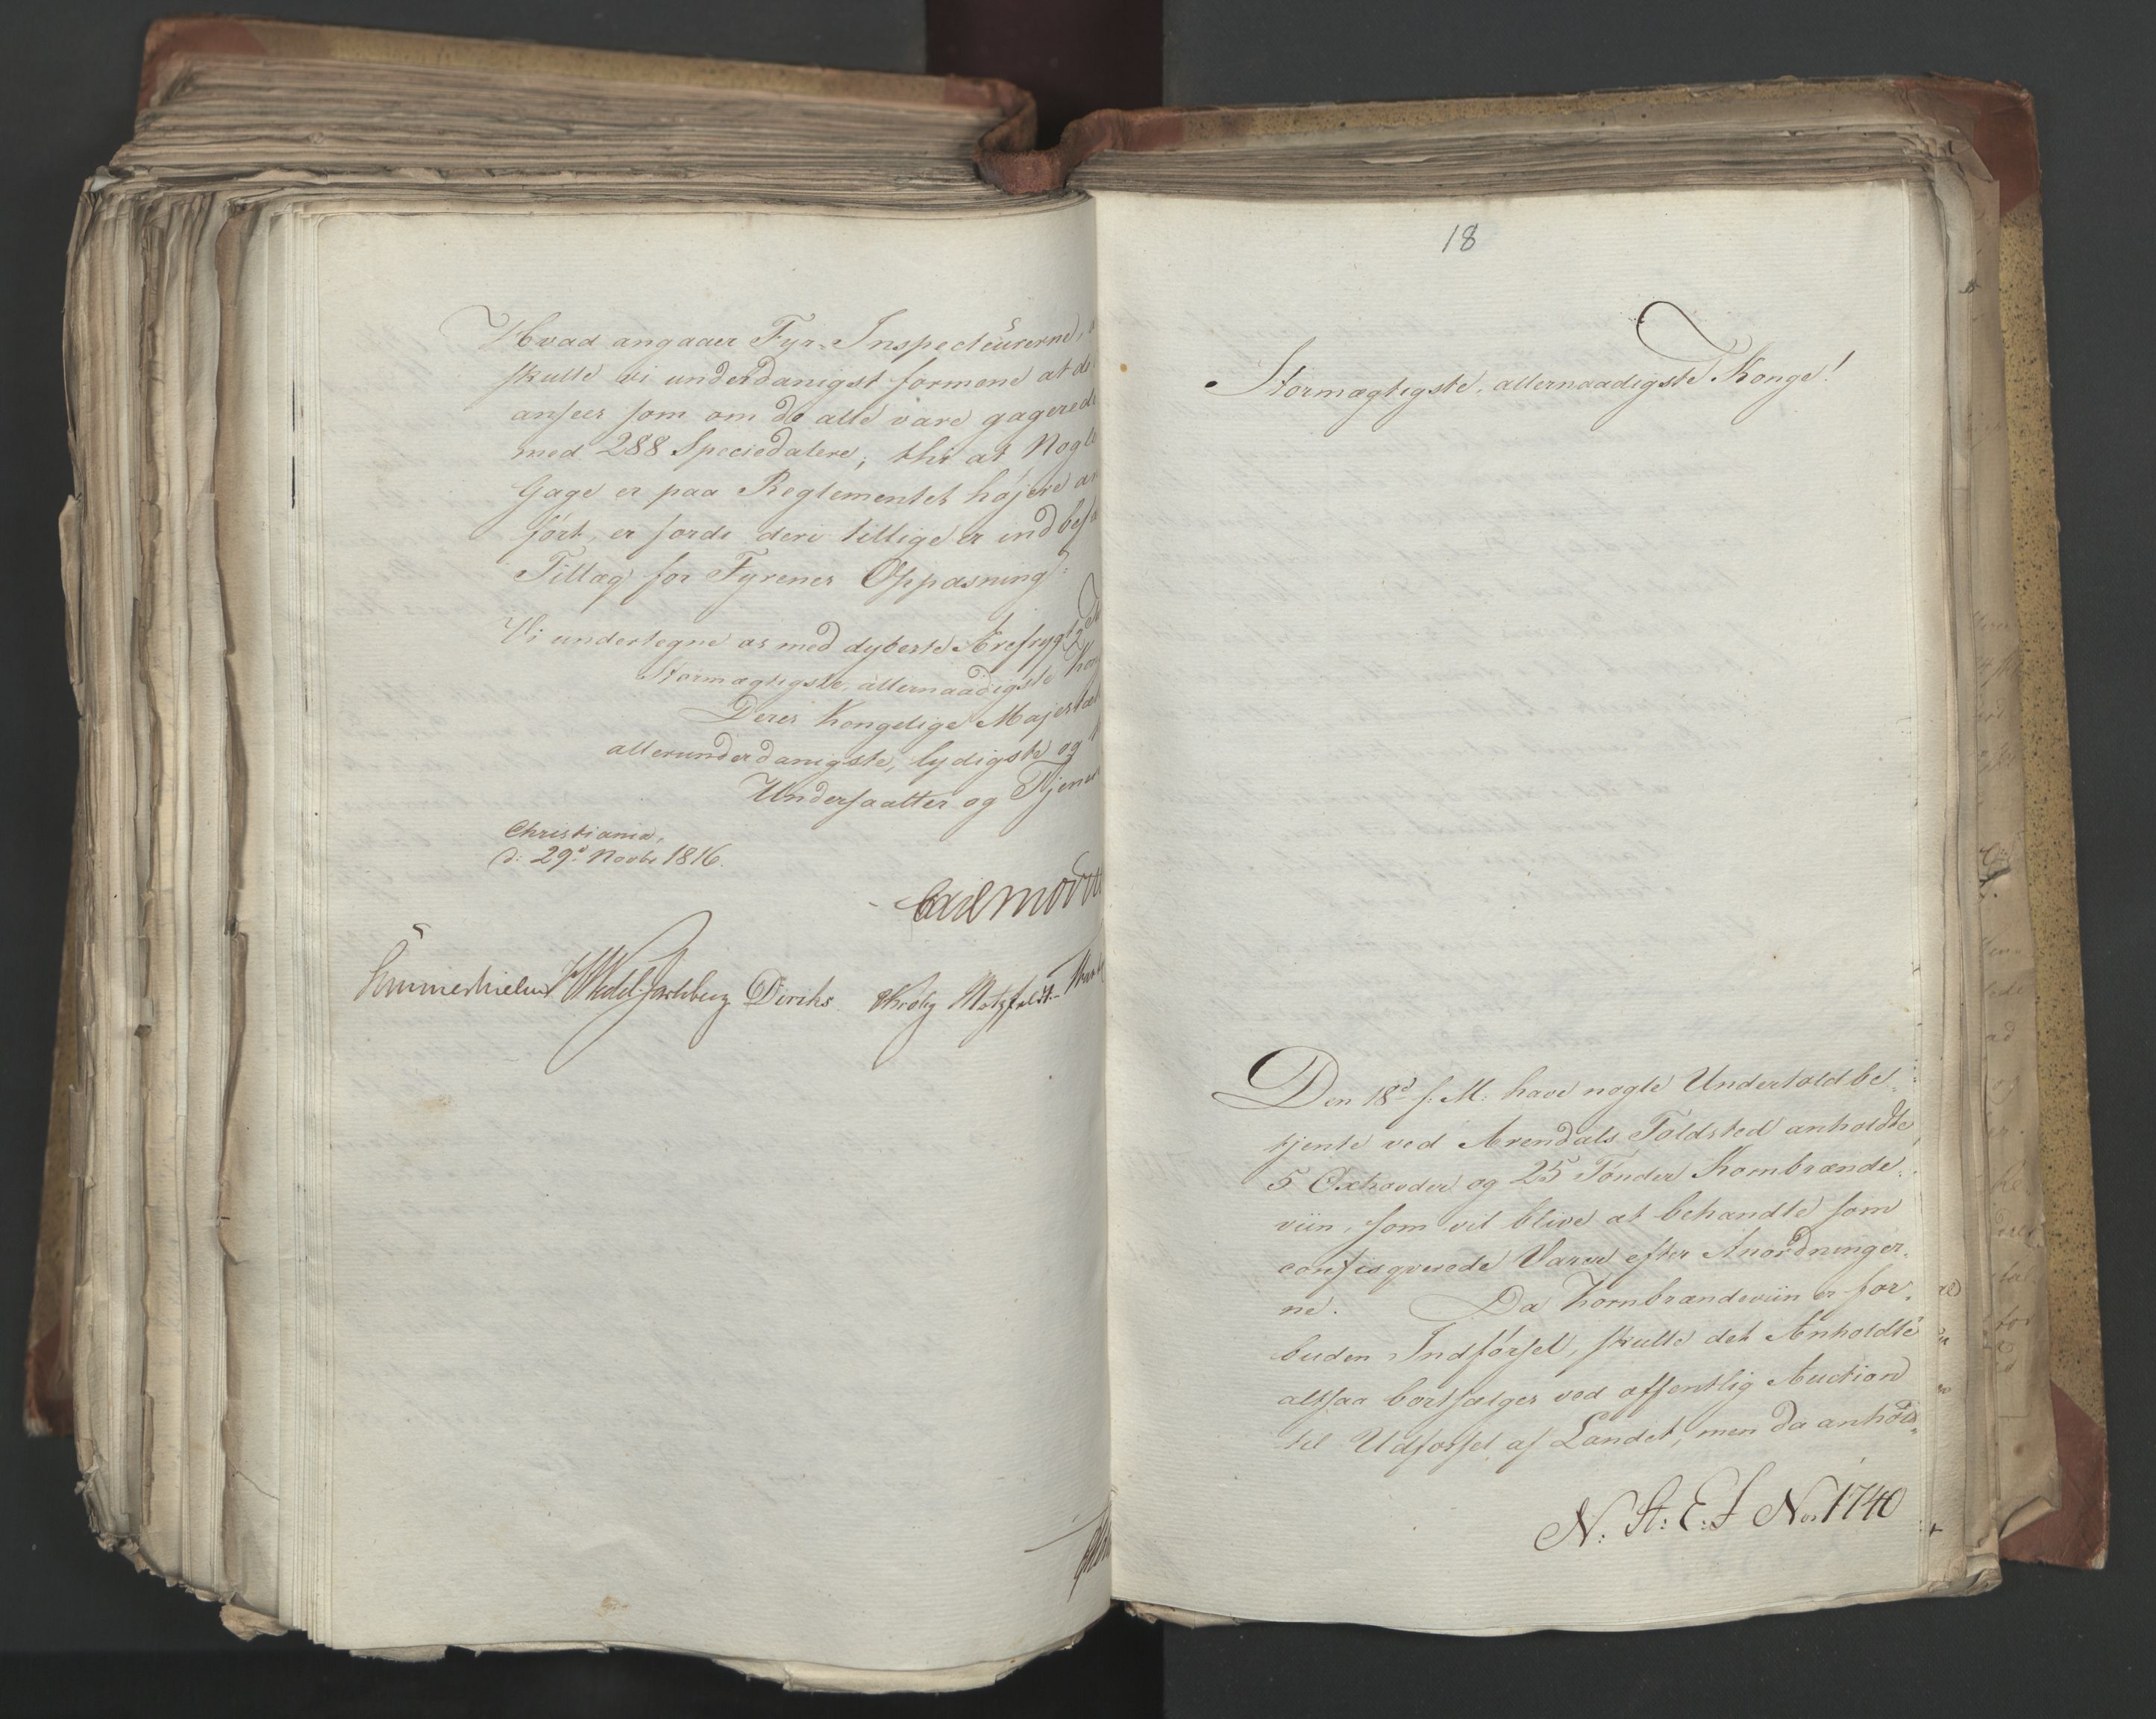 Hvad angaaer Fyr-Inspecteurerne,
skulle vi underdanigst formene at de
ansees som om de alle vare gagerede
med 288 Speciedalere; thi at Nogle
Gage er paa Reglementet höjere an
fört, er fordi deri tillige er indbef
Tillæg for Fyrenes Oppasning.
Vi undertegne os med dybeste Ærefrygt
Stormægtigste, allernaadigste Kon
Deres Kongelige Majestæt
allerunderdanigste, lydigste og
Undersaatter og Tjener
Christiania,
d: 29d Novbr 1816.
Carl Mörner
Sommerhielm Wedel-Jarlsberg Diriks Krohg Motzfeldt
18
Stormægtigste, allernaadigste Konge!
Den 18d f. M. have nogle Undertoldbe-
tjente ved Arendals Toldsted anholdte
5 Oxhoveder og 25 Tönder Kornbrænde-
viin, som vil blive at behandle som
confisqverede Varer efter Anordninger-
ne. Da Kornbrændeviin er for-
buden Indförsel, skulle det Anholdte
altsaa bortsælges ved offentlig Auction
til Udförsel af Landet, men da anhold-
N: St: E: J No. 1740